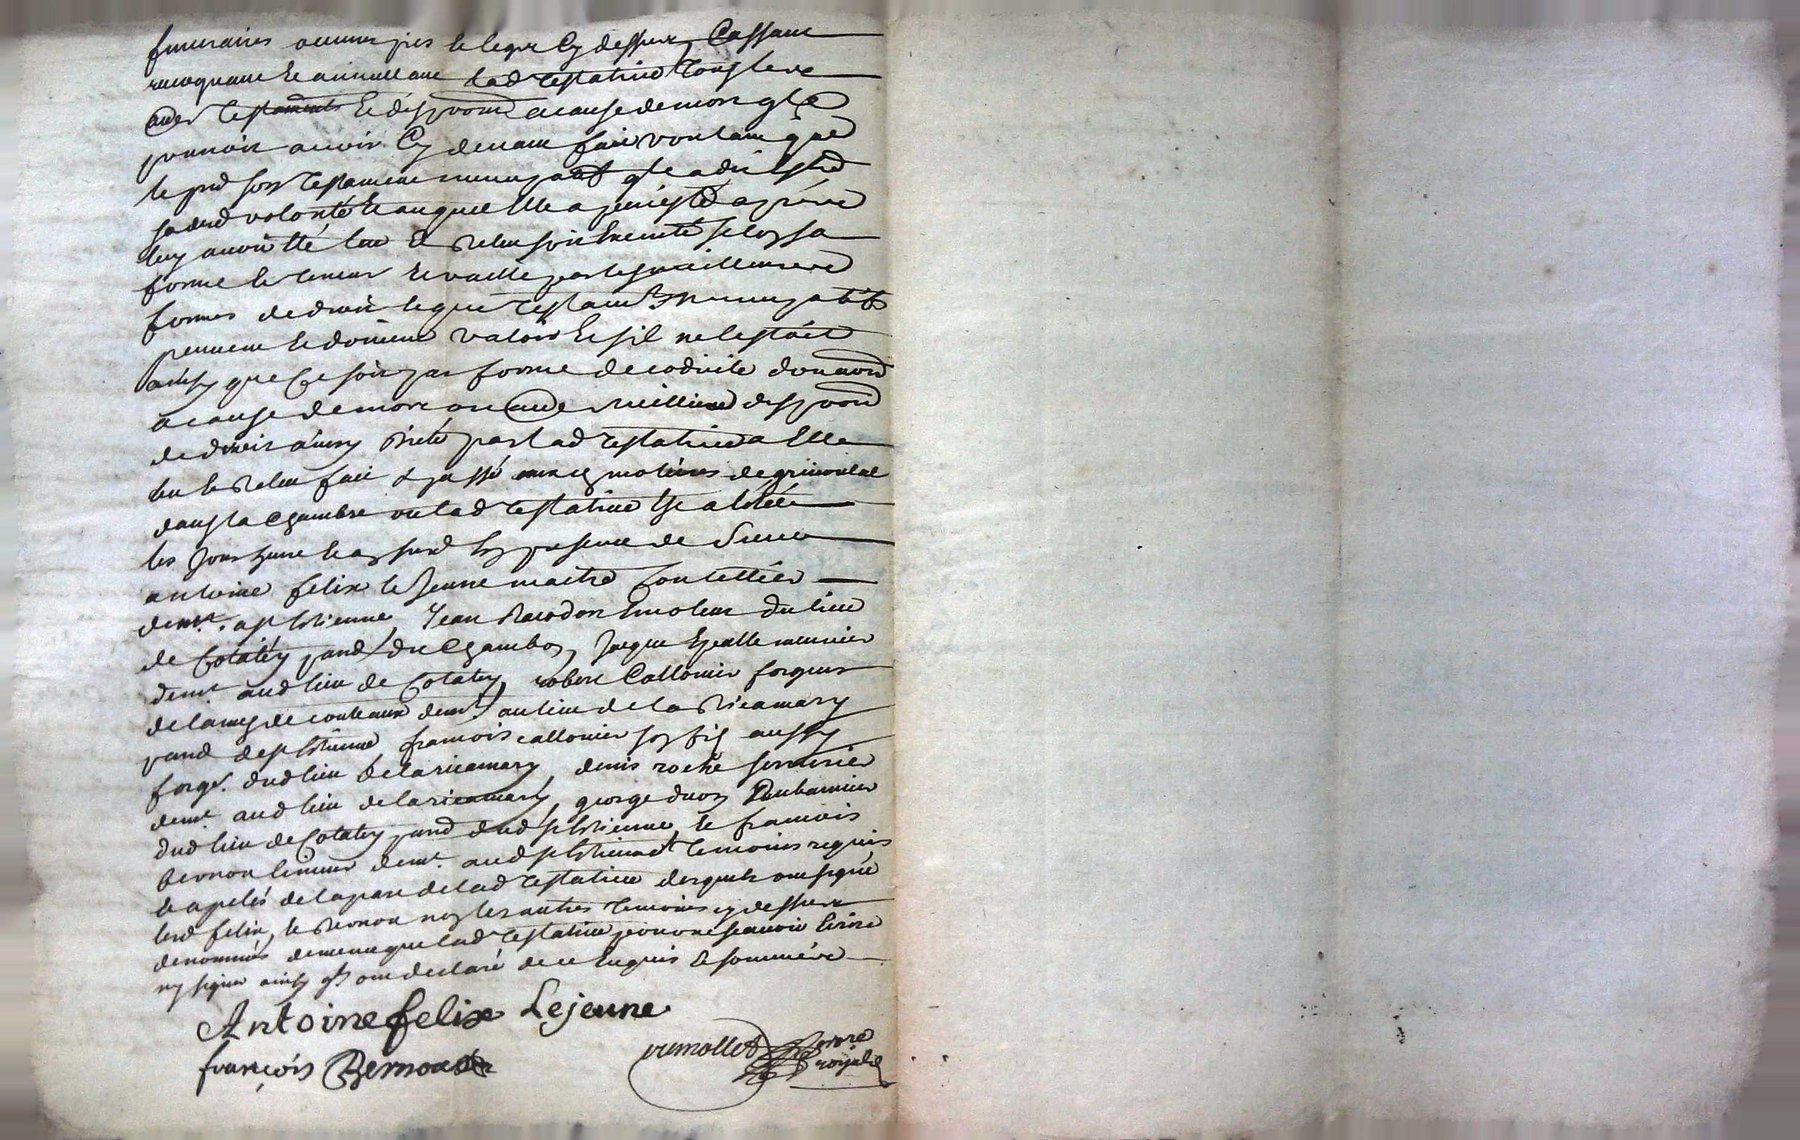 funeraires œuvres pies le legat Cy dessus, Cassant
revoquant et annullant lad testatrice tous les
aues Testaments et disp~ons a cause de mort q~le
pourroit avoir Cy devant fait voulant que
le p~nt son testament nuncupatif q~le a dit estre
sad~e volonté et auquel elle a persisté apres
luy avoir été lu et relu soit executé selon sa
forme et teneur et vaille par les meilleures
formes de droit le que testam~t nuncupatif
peuvent et doivent valoir et s'il ne l'estoit
ainsy que ce soit par forme de codicile don~aon
a cause de mort ou aue meilleure disp~on
de droit ainsy dicté par lad testatrice a elle
lu et relu fait & passé aux moulins de
dans la chambre ou lad testatrice est alitée
les jour et an susd en presence de Sieur
antoine felix le Jeune maitre coutellier
dem~t a s~t Etienne, Jean emoleur du lieu
de Cotatey parr~e du Chambon, Jacque munier
dem~t aud lieu de Cotatey, robert Callomier forgeur
de lames de couteaux dem~t au lieu de la Ricamary
parr~e de s~t Etienne, francois callomier son fils aussy
forg~r dud lieu de la ricamary, denis roche serrurier
dem~t aud lieu de la ricamary, george
dud lieu de Cotatey parr~e dud s~t Etienne, et francois
Bernou dem~t aud s~t Etienne temoins requis
et apelés de la part de lad testatrice desquels ont signé
lesd felix, et Bernou non les autres temoins cy dessus
denommés de meme que lad testatrice pour ne scavoir écrire
ny signer ainsy q~ls ont declaré de ce enquis et sommés
Antoine felix Lejeune
françois Bernou
notre
royal